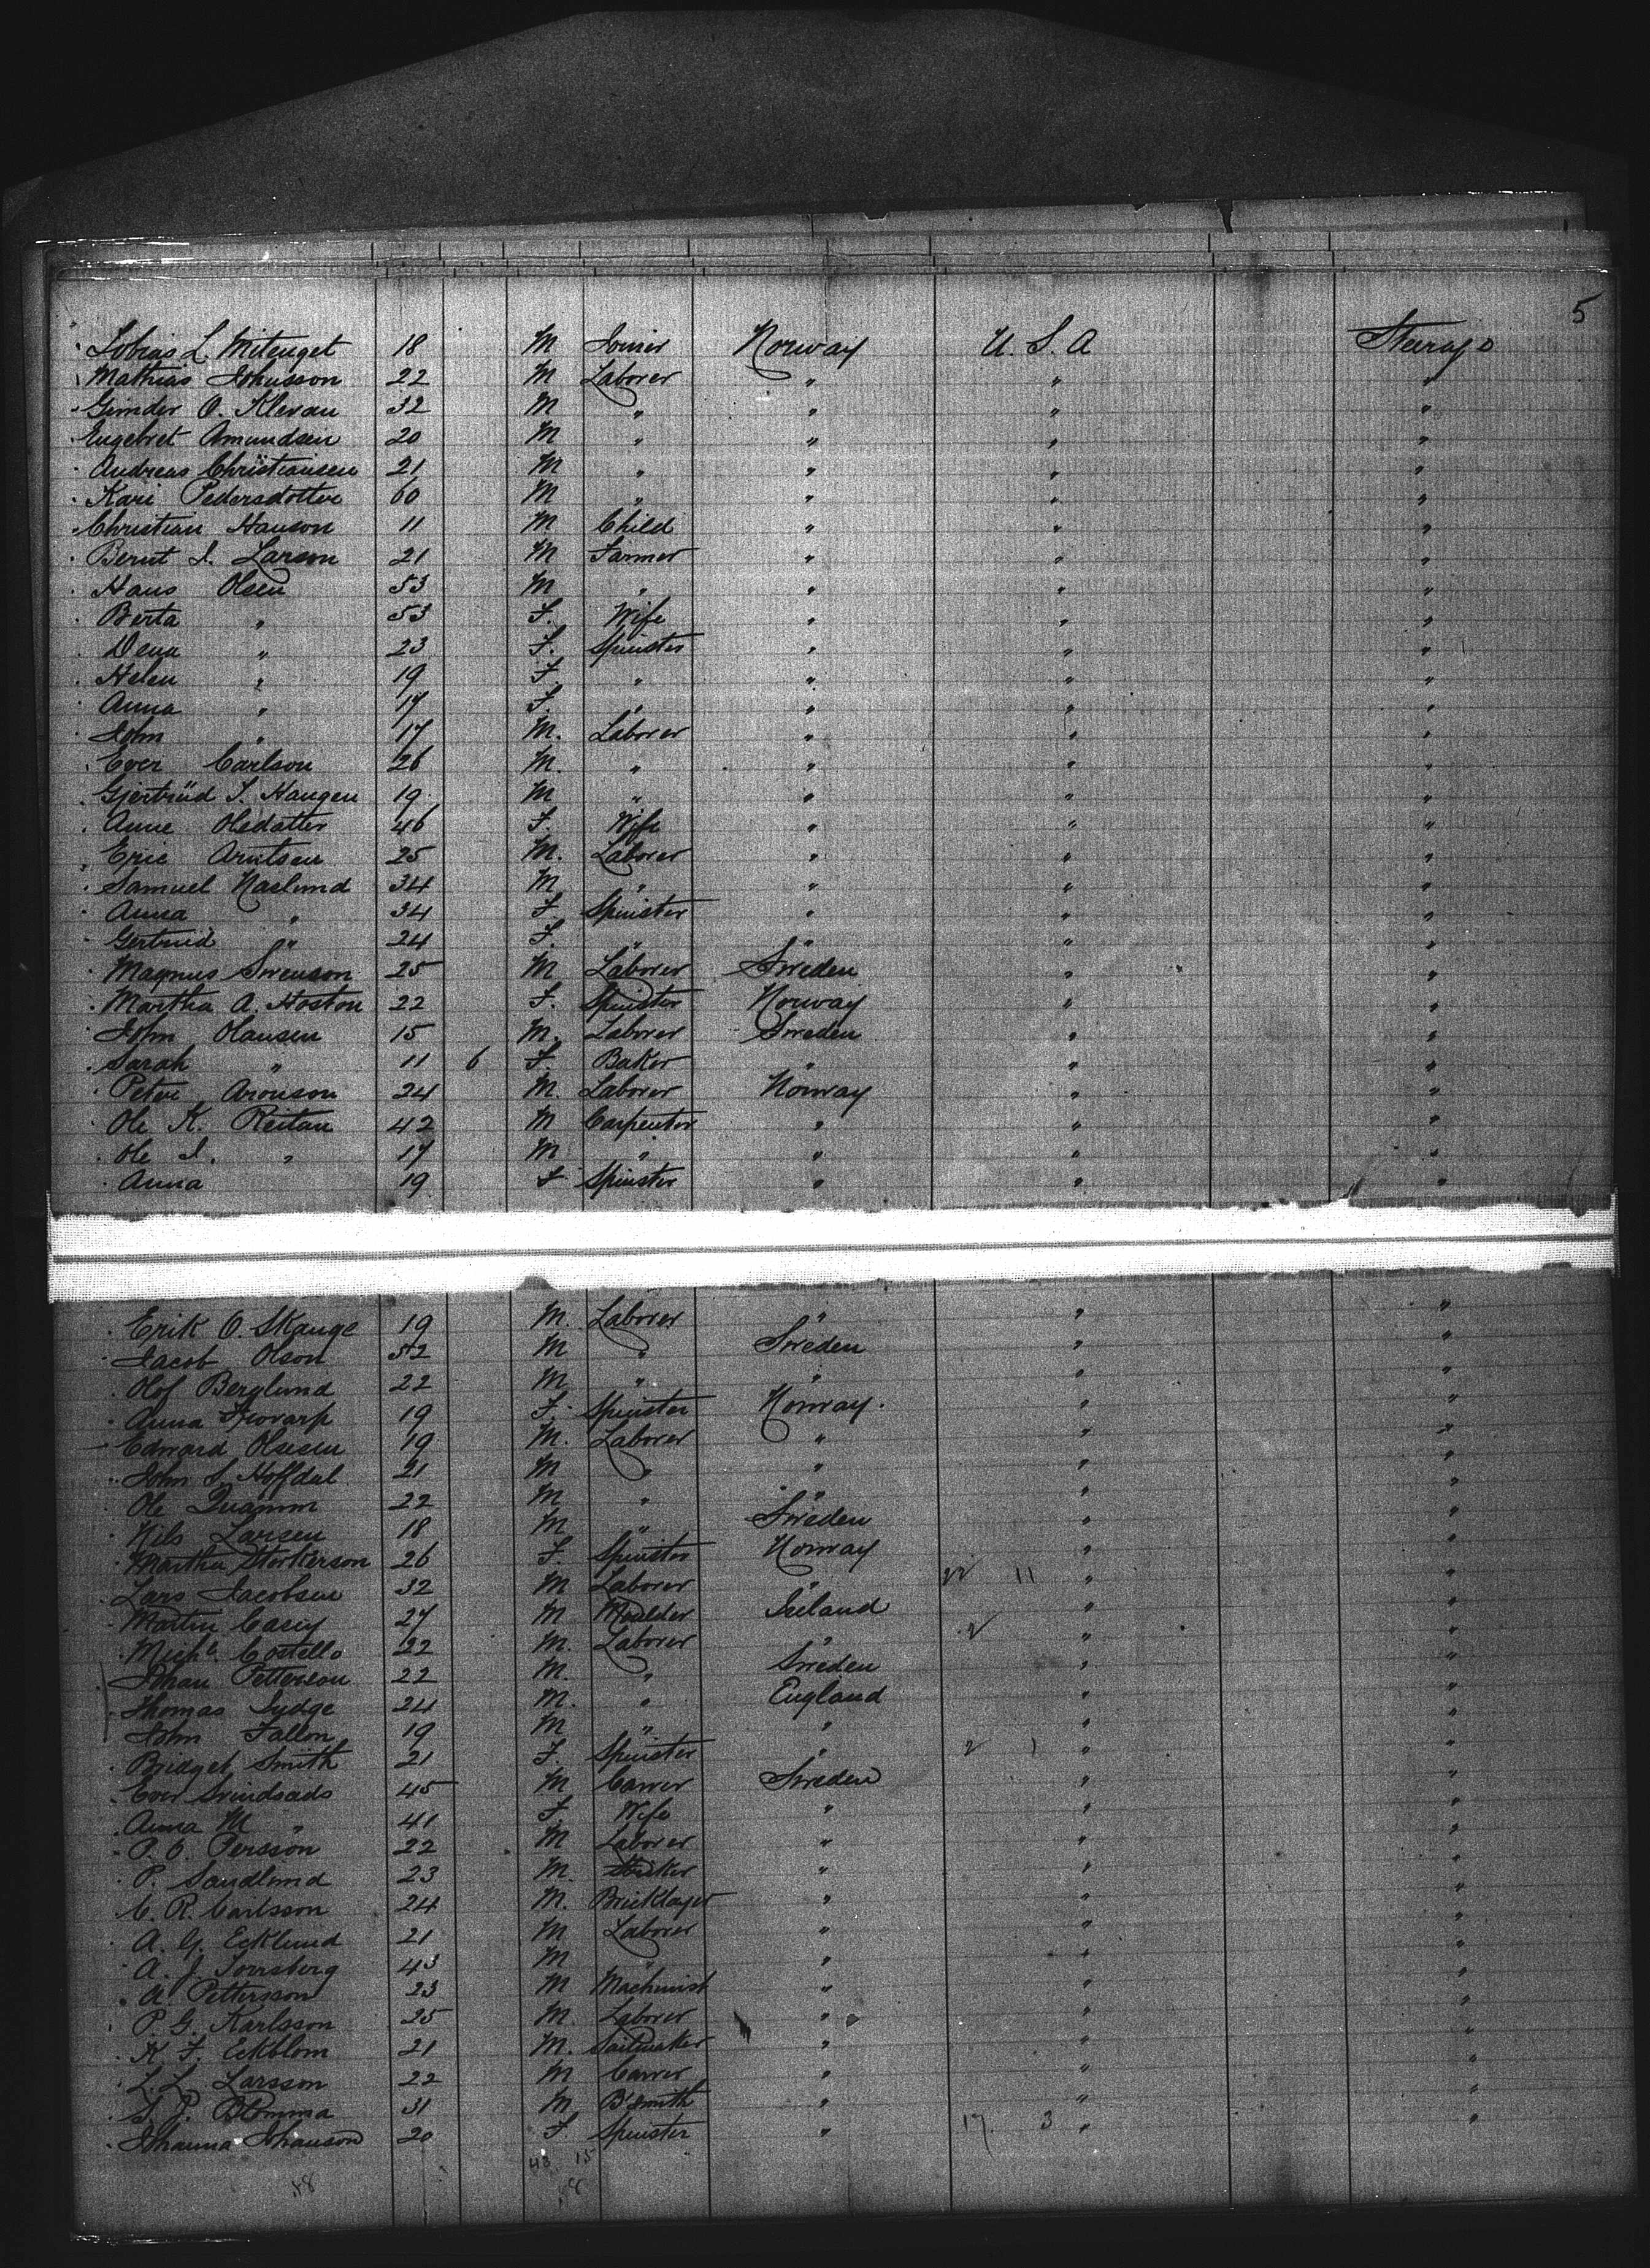 5
Tobias L. Mitenget 18 M Joiner Norway U. S. A Steerage
Mathias Johnsson 22 M Laborer " " "
Gunder O. Klevan 32 M " " " "
Engebret Amundsen 20 M " " " "
Andreas Christiansen 21 M " " " "
Kari Pedersdotter 60 M " " " "
Christian Hanson 11 M Child " " "
Bernt I. Larson 21 M Farmer " " "
Hans Olsen 53 M " " " "
Berta " 53 F. Wife " " "
Dena " 23 F. Spinster " " "
Helen " 19 F. " " " "
Anna " 17 F. " " " "
John " 17 M. Laborer " " "
Ever Carlson 26 M. " " " "
Gjertrüd S. Haugen 19 M " " " "
Anne Oledatter 46 F. Wife " " "
Eric Arntsen 25 M. Laborer " " "
Samuel Naslund 34 M " " " "
Anna " 34 F. Spinster " " "
Gertrud " 24 F. " " " "
Magnus Swenson 25 M Laborer Sweden " "
Martha A. Hoston 22 F. Spinster Norway " "
John Hansen 15 M. Laborer Sweden " "
Sarah " 11 6 F. Baker " " "
Peter Aronson 24 M. Laborer Norway " "
Ole K. Reitan 42 M Carpenter " " "
Ole I. " 17 M " " " "
Anna 19 F Spinster " " "
Erik O. Skauge 19 M. Laborer " " "
Jacob Olson 52 M " Sweden " "
Olof Berglund 22 M " " " "
Anna 19 F. Spinster Norway. " "
Edward Olsesen 19 M. Laborer " " "
John S. Hoffdal 21 M " " " "
Ole Quamm 22 M " " " "
Nils Larsen 18 M " Sweden " "
Martha Storkerson 26 F. Spinster Norway " "
Lars Jacobsen 32 M Laborer " 11 " "
Martin Casey 27 M Moulder Ireland " "
Michl. Costello 22 M. Laborer " " "
Johan Petterson 22 M. " Sweden " "
Thomas Lydge 24 M. " England " "
John Fallon 19 M " " " "
Bridget Smith 21 F. Spinster " 2 1 " "
Ever Svindsads 45 M Carver Sweden " "
Anna M " 41 F Wife " " "
P. O. Persson 22 M Laborer " " "
P. Sandlund 23 M. " " "
C. R. Carlsson 24 M. Bricklayer " " "
A. G. Ecklund 21 M Laborer " " "
A. J. Torrsberg 43 M " " " "
A. Pettersson 23 M Machinist " " "
P. G. Karlsson 25 M. Laborer " " "
K F. Eckblom 21 M. Sailmaker " " "
L. L. Larsson 22 M Carver " " "
S. P. Blomma 31 M B'Smith " " "
Johanna Johanson 20 F Spinster " 17 3 " "
48 15